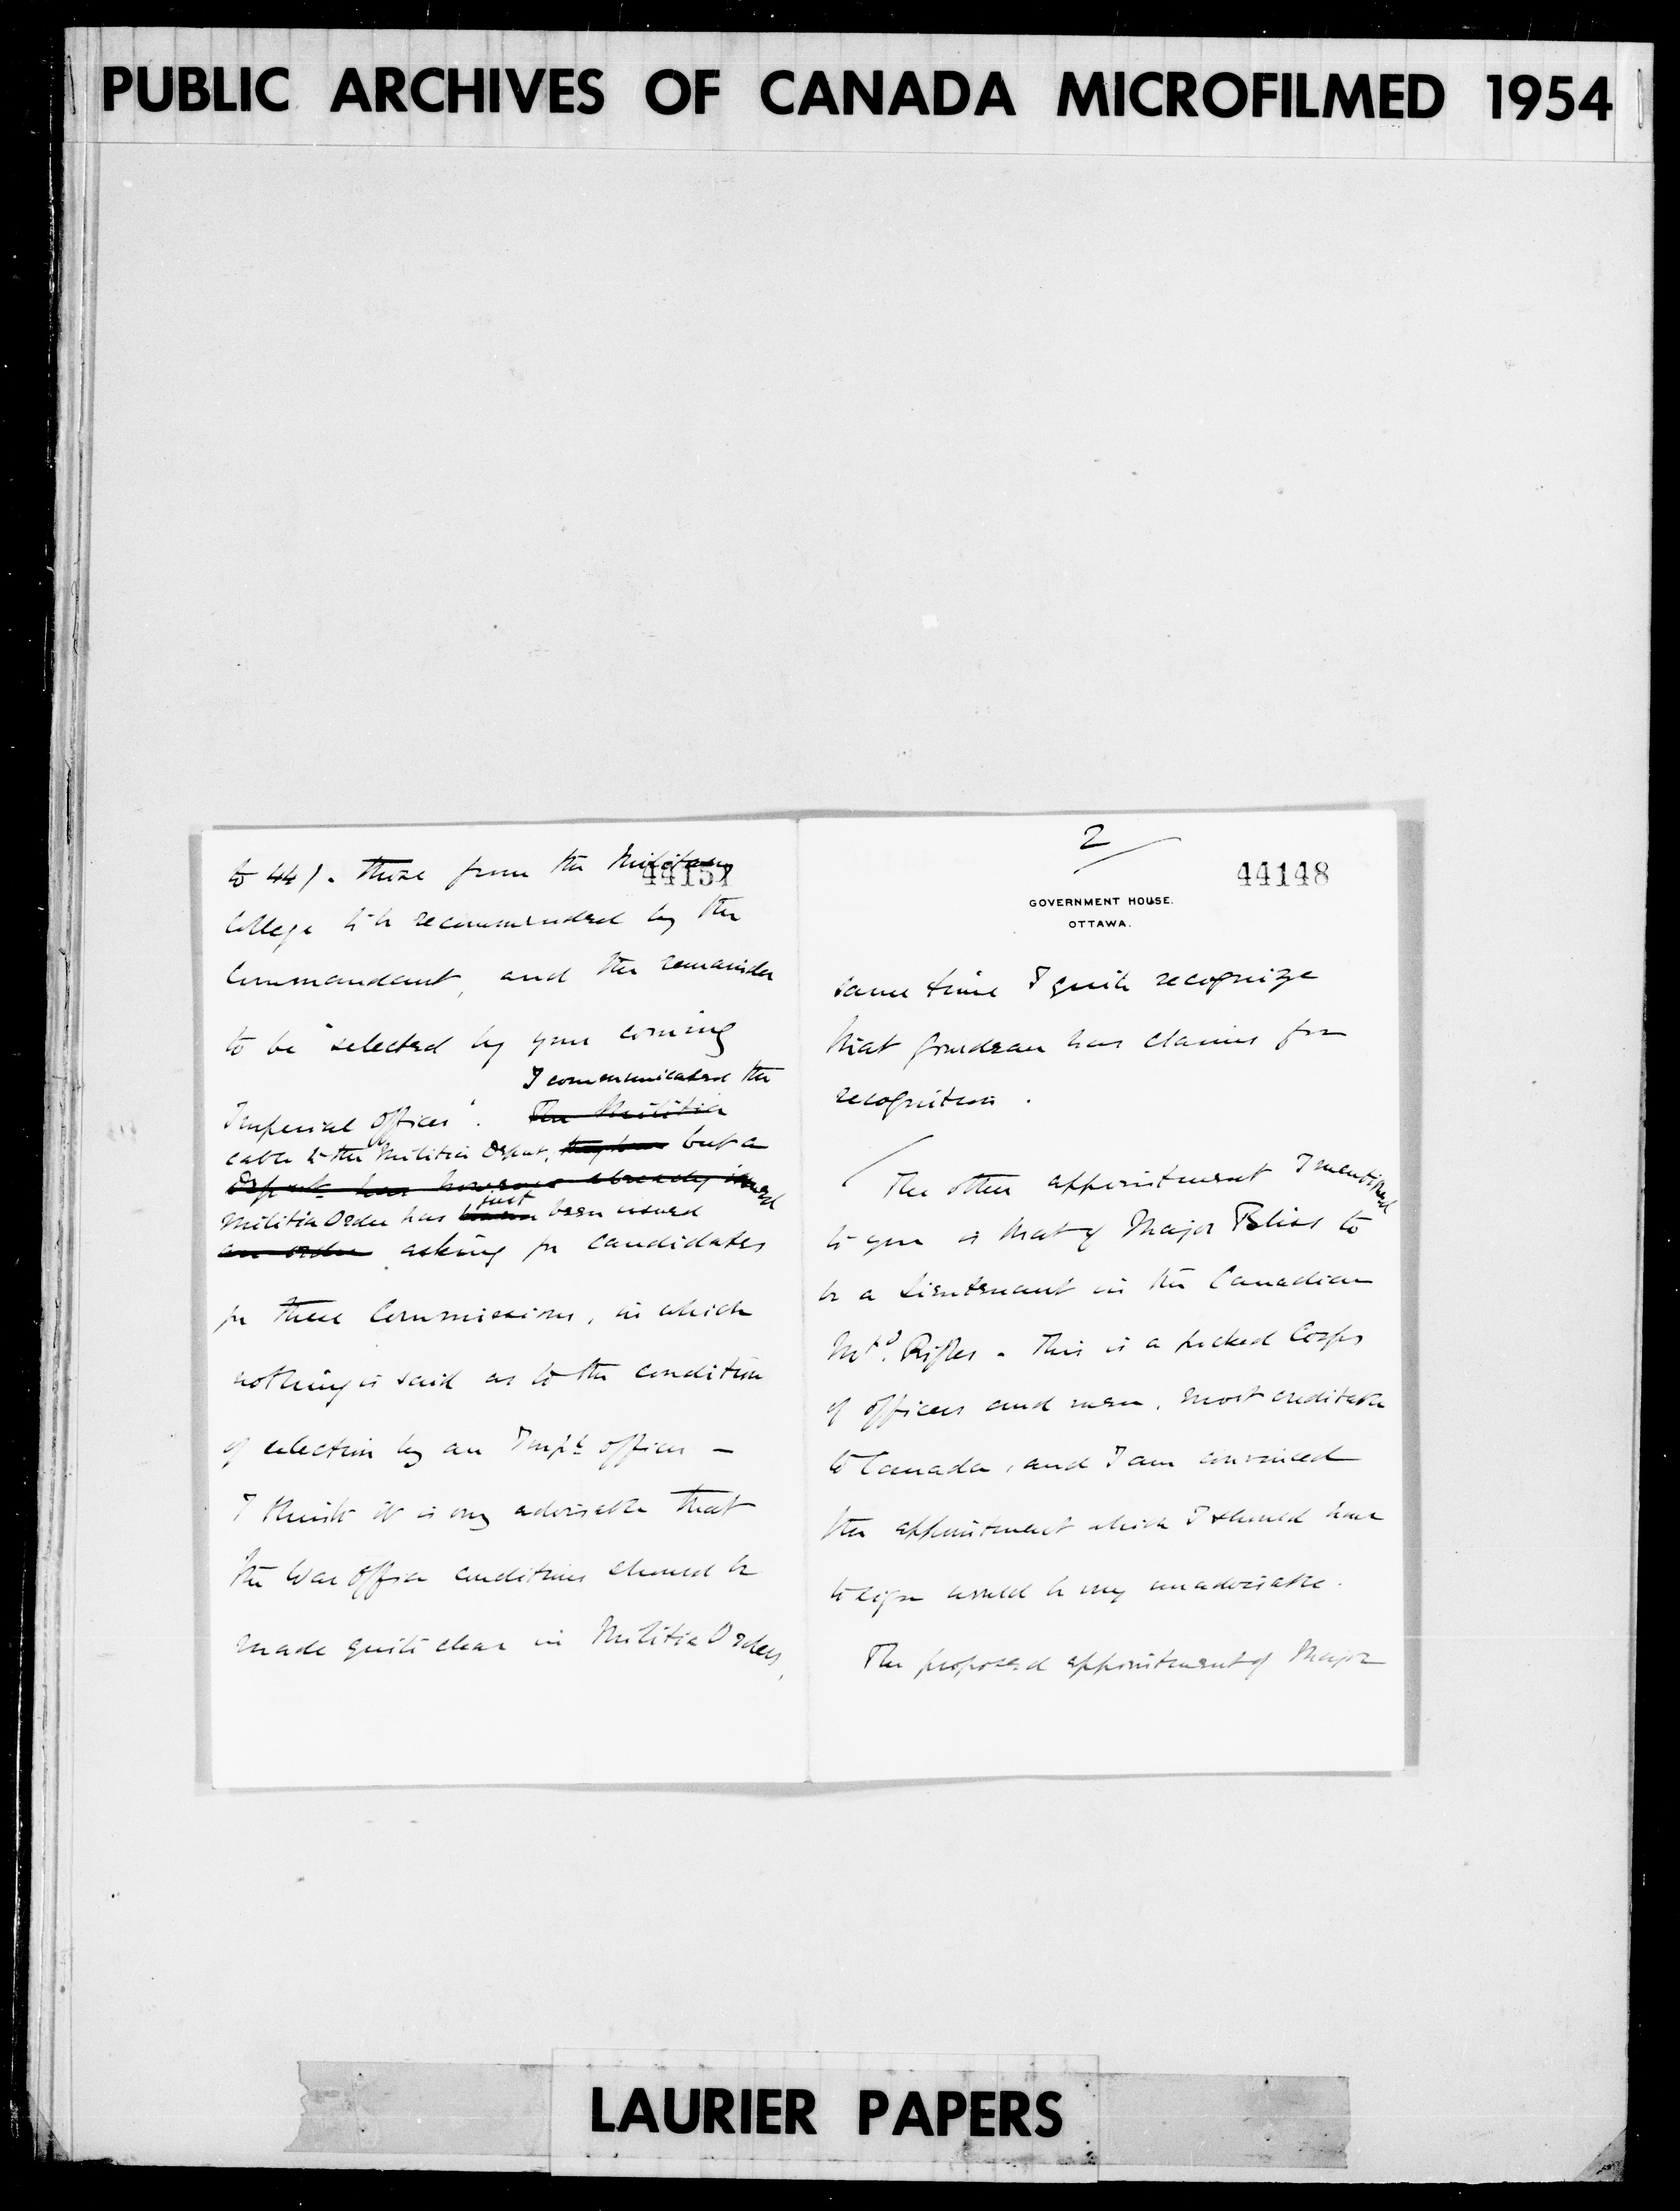 PUBLIC ARCHIVES OF CANADA MICROFILMED 1954
to 44). those from the Military
44151
College to be recommended by the
Commandant, and the remainder
to be "selected by your coming
I communicated the
Imperial Officer". The Militia
cable to the Militia Depmt, but a
Depmt has however already issued
just
Militia Order has been issued
an order asking for candidates
for these Commissions, in which
nothing is said as to the condition
of selection by an Impl officer —
I think it is very advisable that
the War Office conditions should be
made quite clear in Militia Orders,
2
44148
GOVERNMENT HOUSE.
OTTAWA.
same time I quite recognize
that Gourdeau has claims for
recognition.
The other appointment I mentioned
to you is that of Major Bliss to
be a Lieutenant in the Canadian
Mtd. Rifles - This is a picked Corps
of officers and men, most creditable
to Canada, and I am convinced
the appointment which I should have
to sign would be very unadvisable.
The proposed appointment of Major
LAURIER PAPERS